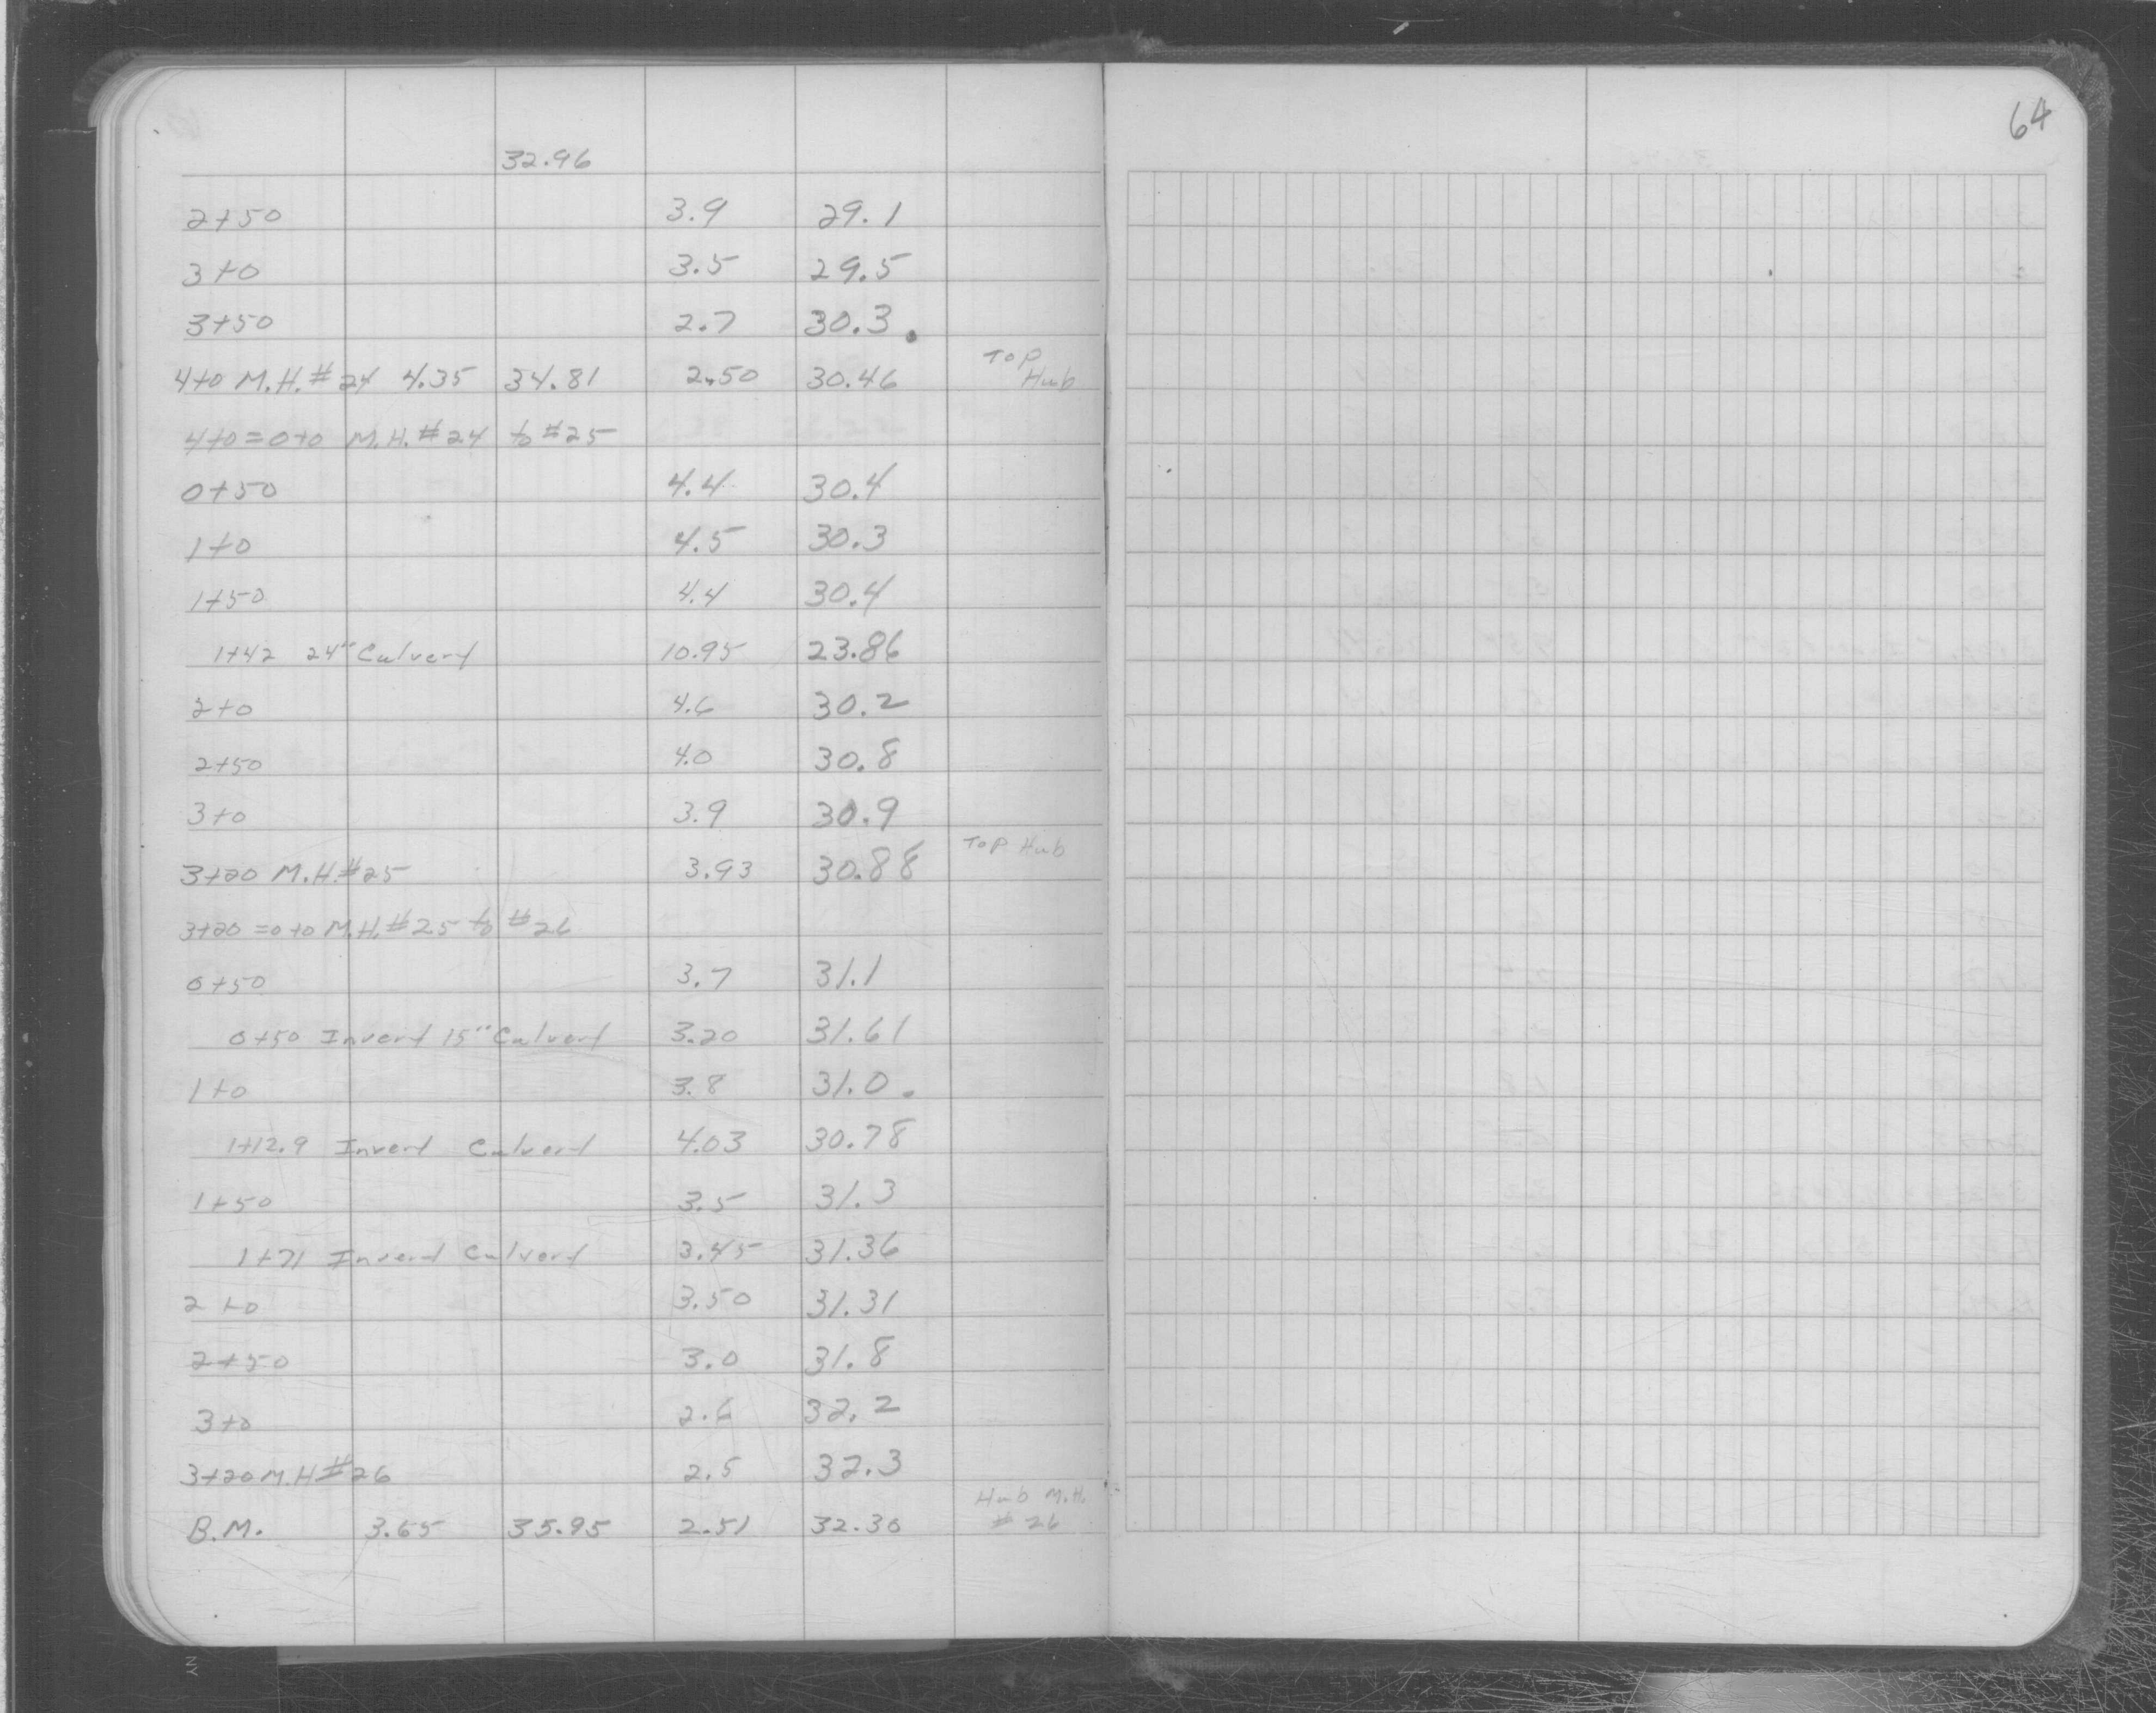 64
32.96
2+50 3.9 29.1
3+0 3.5 29.5
3+50 2.7 30.3
4+0 M.H. #24 4.35 34.81 2.50 30.46 Top Hub
4+0=0+0 M.H. #24 to #25
0+50 4.4 30.4
1+0 4.5 30.3
1+50 4.4 30.4
1+42 24" Culvert 10.95 23.86
2+0 4.6 30.2
2+50 4.0 30.8
3+0 3.9 30.9
3+20 M.H. #25 3.93 30.88 Top Hub
3+20=0+0 M.H. #25 to #26
0+50 3.7 31.1
0+50 Invert 15" Culvert 3.20 31.61
1+0 3.8 31.0
1+12.9 Invert Culvert 4.03 30.78
1+50 3.5 31.3
1+71 Invert Culvert 3.45 31.36
2+0 3.50 31.31
2+50 3.0 31.8
3+0 2.6 32.2
3+20 M.H. #26 2.5 32.3
B.M. 3.65 35.95 2.51 32.30 Hub M.H. #26
NY